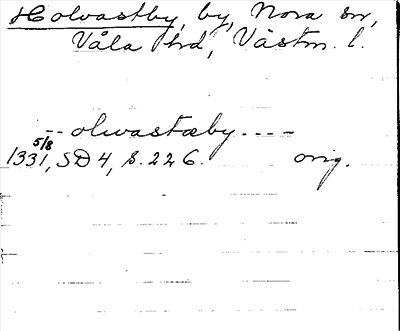 Holvastby, by, Nora sn,
Våla hd, Västm. l.
-- olwastæby ----
1331 5/8, SD 4, s. 226. orig.